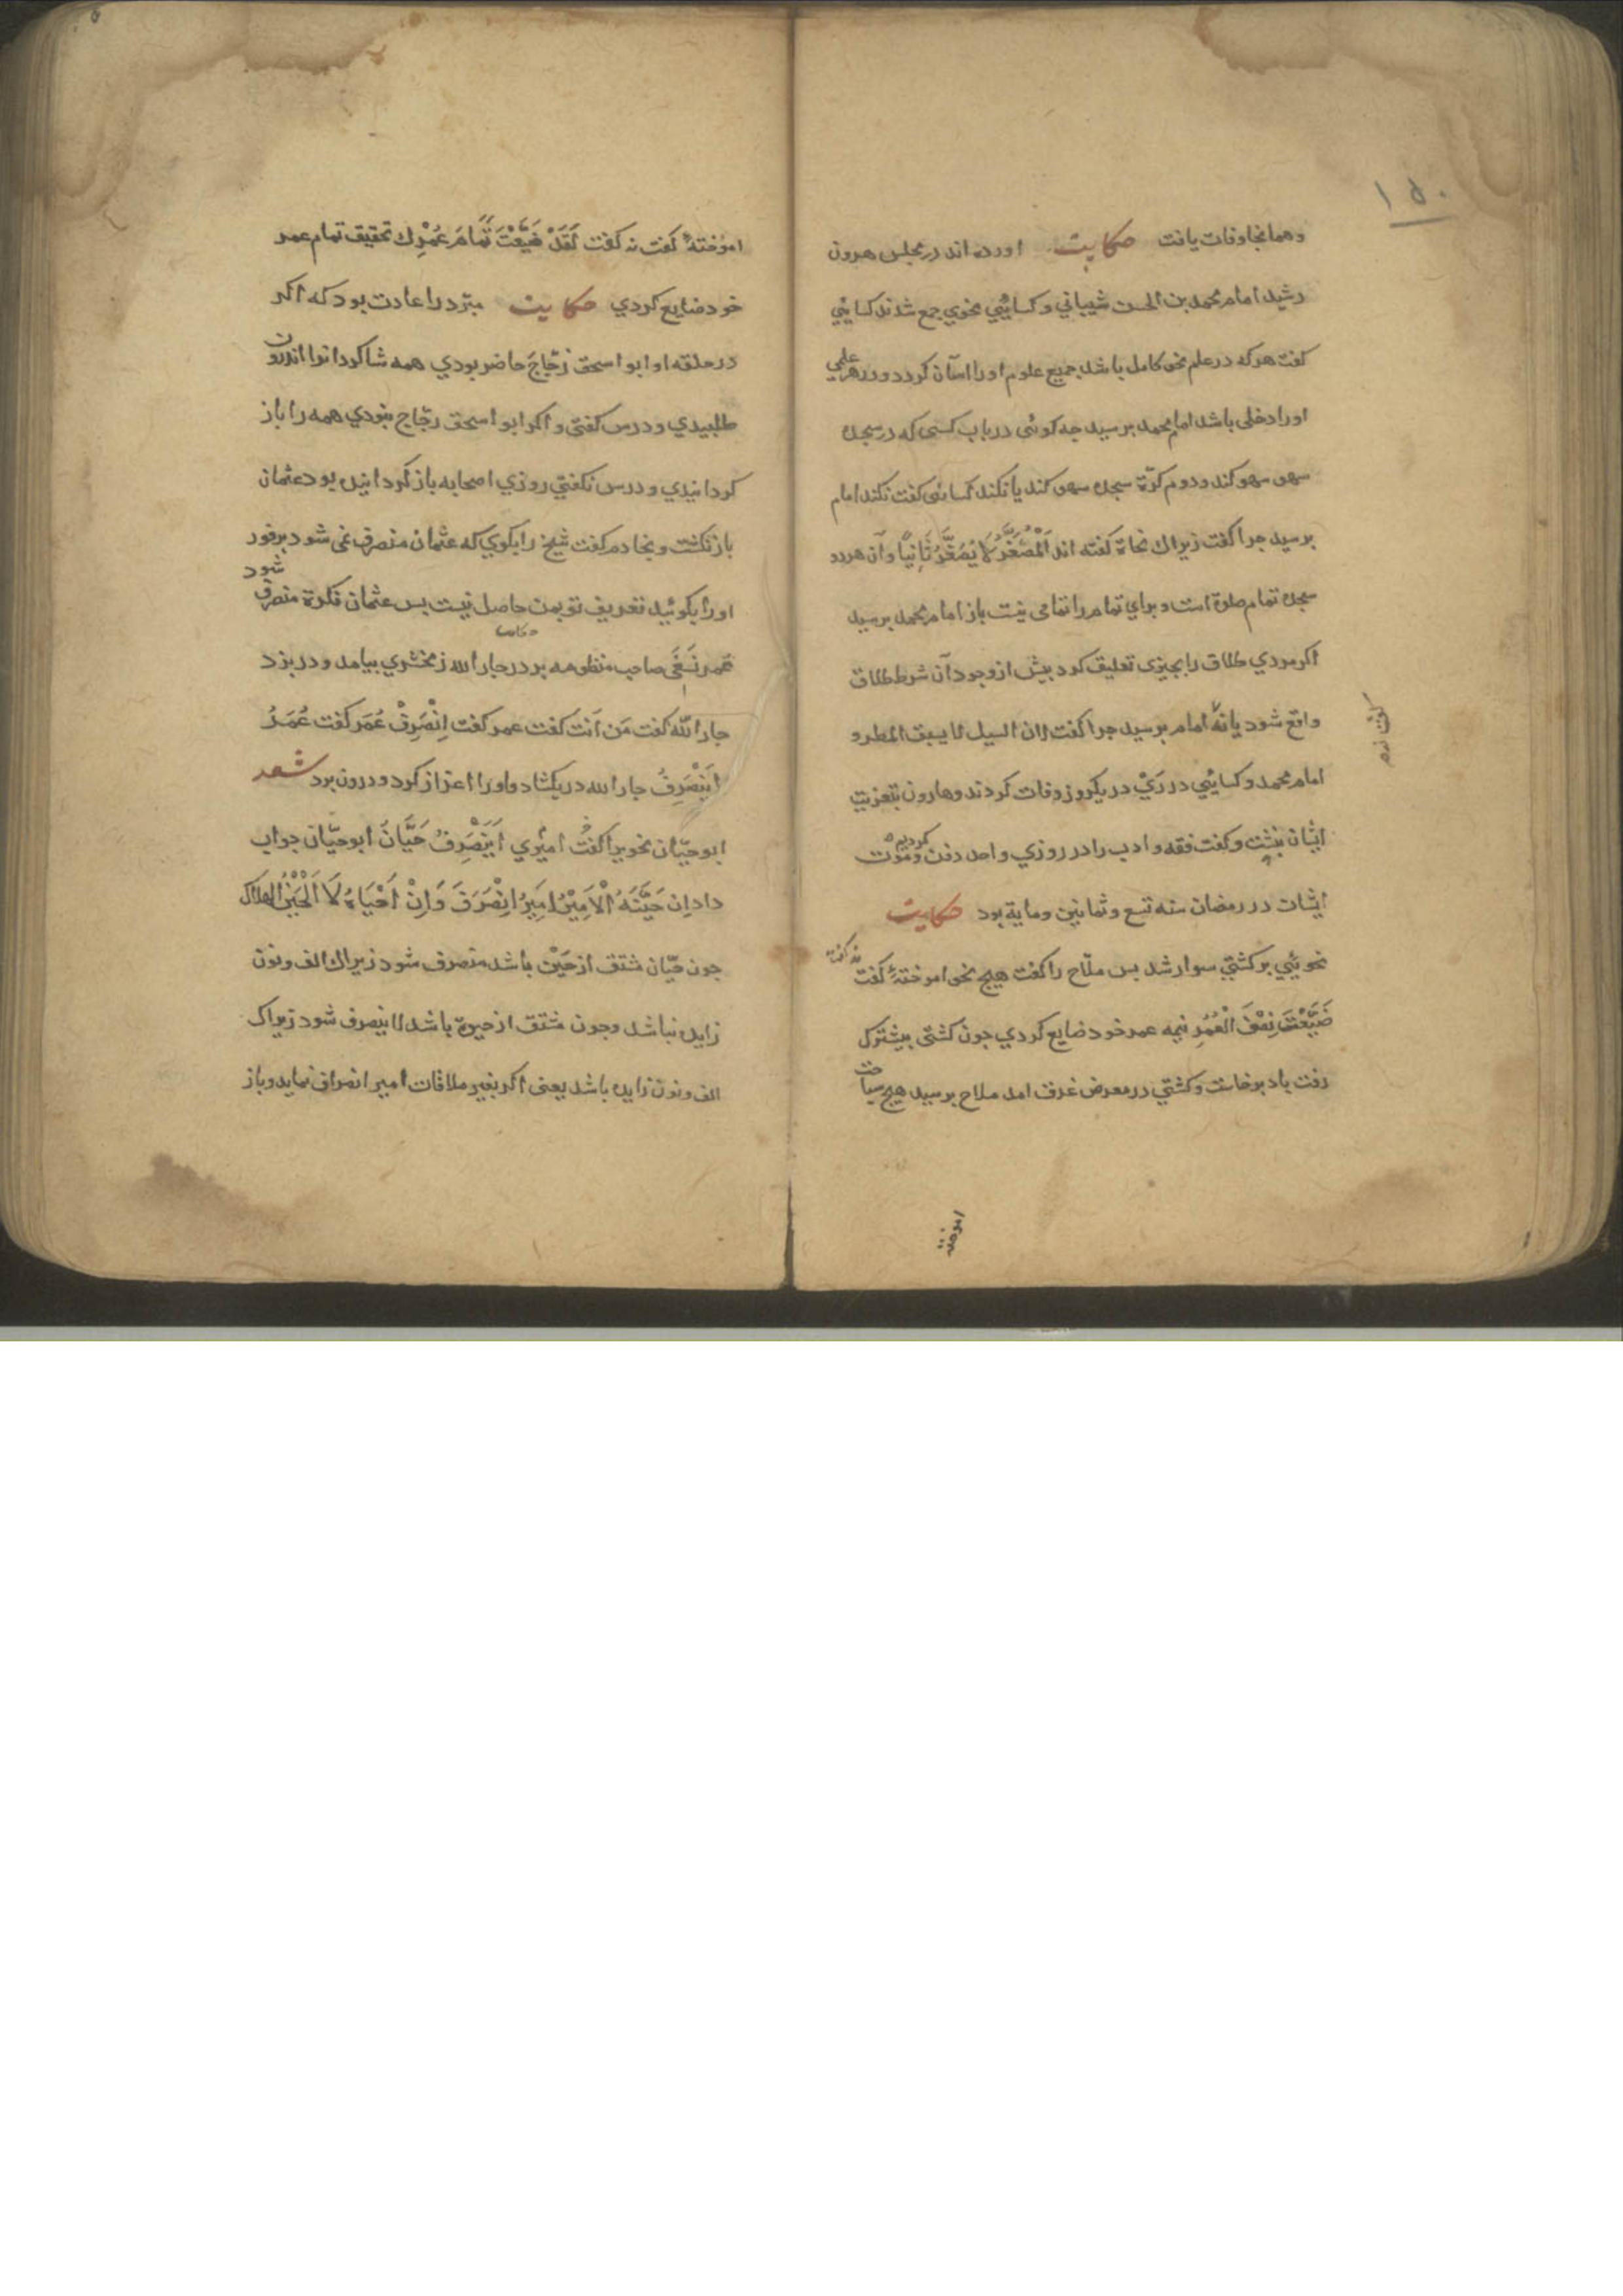 ۱۵۰
وهمانجا وفات یافت حکایت اورده اند در مجلس هرون
رشید امام محمد بن الحسن شیبانی و کسائیی نحوي جمع شدند کسایی
کفت هرکه در علم نحو کامل باشد جمیع علوم اورا اسان کردد ودر هر علمی
اورا دخلی باشد امام محمد برسید جه کوئی در باب کسی که در سجده
سهو سهو کند ودوم کرّة سجده سهو کند یا نکند کسائی کفت نکند امام
برسید جرا کفت زیراك نحاة کفته اند اَلْمُصَغَّرُ لَا یُصَغَّرُ ثَانِیًا وآن هردو
سجده تمام صلوة است وبراي تمام را تمامی نیست باز امام محمد برسید
اکر مردي طلاق را بجیزی تعلیق کرد بیش از وجود آن شرط طلاق
واقع شود یا نهٔ امام برسید جرا کفت لان السیل لا یسبق المطر و
کفت نه
امام محمد وکسائیی در رَيْ در یکروز وفات کردند وهارون بتعزیت
ایشان بنشت وکفت فقه وادب را در روزي واحد دفن کردیم وموت
ایشان در رمضان سنه تسع وثمانین ومایة بود حکایت
نحوئیي بر کشتي سوار شد بس ملّاح را کفت هیج نحو اموختهٔ کفت نه کفت
ضَیَّعْتَ نِصْفَ الْعُمُرِ نیمه عمر خود ضایع کردي جون کشتی بیشترك
رفت باد برخاست وکشتي در معرض غرق امد ملاح برسید هیج سیاحت
اموخته
اموُختهٔ کفت نه کفت لَقَدْ ضَیَّعْتَ تَمَامَ عُمْرِك تحقیق تمام عمر
خود ضایع کردي حکایت مبرّد را عادت بود که اکر
در حلقه او ابو اسحق زجّاجَ حاضر بودي همه شاکردانرا اندرون
طلبیدي ودرس کفتی و اکر ابو اسحق زجّاج نبودي همه را باز
کردانیدي ودرس نکفتي روزي اصحابه باز کردانیده بود عثمان
باز نکشت وبخادم کفت شیخ را بکوي که عثمان منصرف نمی شود برفور
اورا بکوئید تعریف تو بمن حاصل نیست بس عثمان نکرة منصرف شود
حکایت
عمر نسَفَی صاحب منظومه بر در جار الله زمخشري بیامد ودر بزد
جار اللّه کفت مَن اَنْتَ کفت عمر کفت اِنْصَرِفْ عُمَر کفت عُمَرُ
اَیَنْصَرِفُ جار الله در بکشاد واورا اعزاز کرد ودرون برد شعر
ابو حیّان نحویرا کفتُ امیري اَیَنْصَرِفُ حَیَّانُ ابو حیّان جواب
داد اِن حَیَّنَهُ الْاَمِیْرُ اَمِیْرُ اِنْصَرَفَ وَاِنْ اَحْیَاهُ لَا اَلْحَیْنُ الهلاک
جون حیّان مشتق از حَیْن باشد منصرف شود زیراك الف ونون
زایده نباشد وجون مشتق از حیوة باشد لا ینصرف شود زیراک
الف ونون زایده باشد یعنی اکر بغیر ملاقات امیر انصراف نماید وباز